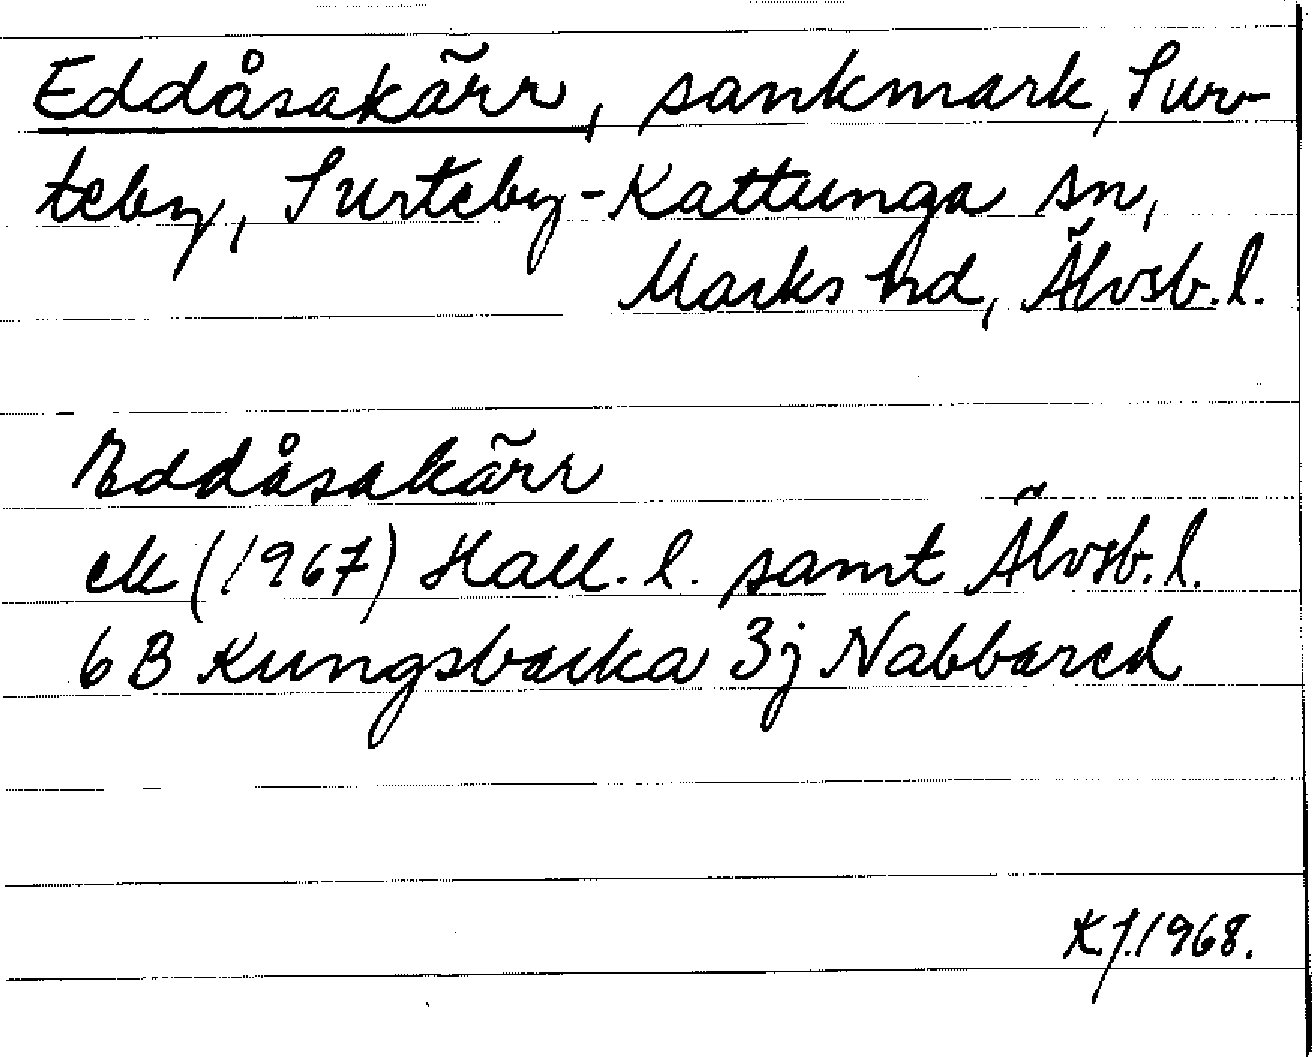 Eddåsakärr, sankmark, Sur-
teby, Surteby-Kattunga sn,
Marks hd, Älvsb. l.
Eddåsakärr
ek (1967) Hall. l. samt Älvsb. l.
6B Kungsbacka 3j Nabbared
K.J. 1968.